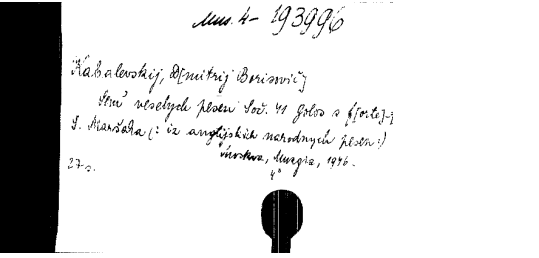 Mus. 4- 193996
Kabalevskij, D[mitrij Borisovič]
Sem' veselych pesen Soč. 41 golos s f[orte]-
S. Maršaka (: iz anglijskich narodnych pesen :)
Moskva, Muzgiz, 1946.
27 s. 4°